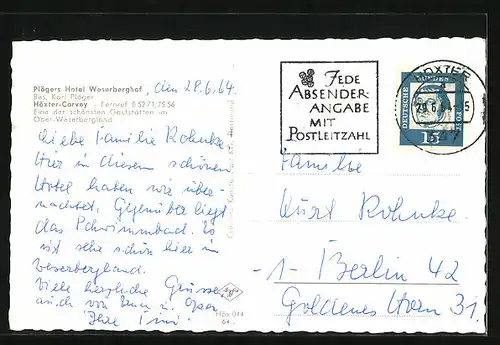 Plögers Hotel Weserberghof,
Bes. Karl Plöger
Höxter-Corvey - Fernruf 0 52 71/75 56
Eine der schönsten Gaststätten im
Ober-Weserbergland
den 28.6.64.
Liebe Familie Rohnke.
Hier in diesem schönen
Hotel haben wir über-
nachtet. Gegenüber liegt
das Schwimmbad. Es
ist sehr schön hier im
Weserbergland.
Viele herzliche Grüsse
auch von
Ihre
Höx 044
JEDE
ABSENDER-
ANGABE
MIT
POSTLEITZAHL
HÖXTER
DEUTSCHE BUNDES POST
15
Familie
Kurt Rohnke.
-1- Berlin 42
Goldenes Horn 31.